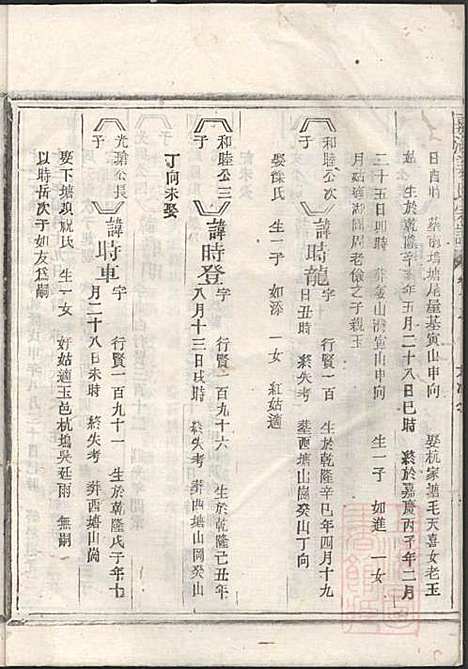 日酉時 葬南塢塘尾屋基寅山申向 娶杭家墩毛天喜女老玉
姑 生於乾隆辛亥年五月二十八日巳時 終於嘉慶丙子年二月
二十五日卯時 葬金山灣寅山申向 生一子 如進 一女
月姑適湖閣周老儉之子親玉
和睦公次子
諱時龍 字 行賢一百九十五 生於乾隆辛巳年四月十九
日丑時 終失考 葬西塘山崗癸山丁向
娶徐氏 生一子 如添 一女 紅姑適
和睦公三子
諱時登 字 行賢一百九十六 生於乾隆己丑年
八月十三日戌時 終失考 葬西塘山崗癸山
丁向未娶
光瑜公長子
諱時車 字 行賢一百九十一 生於乾隆戊子年七
月二十八日未時 終失考 葬西塘山崗
娶下塘塢祝氏 生一女 好姑適玉邑杭塢吳廷雨 無嗣
以時岳次子如友為嗣